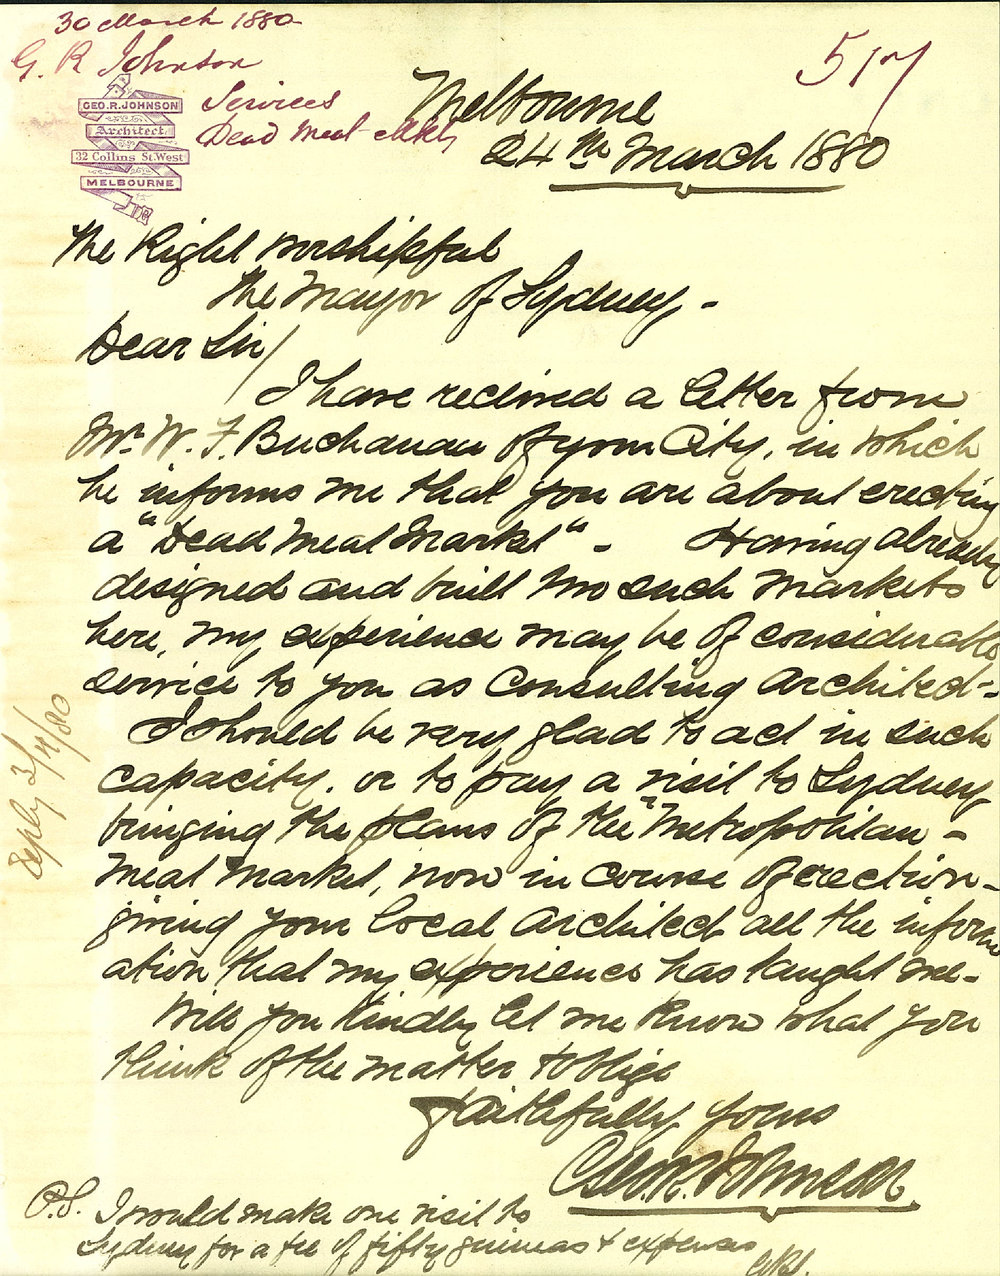 30 March 1880
G. R. Johnson
Services
Dead Meat Mkt
517
GEO. R. JOHNSON
Architect
32 Collins St. West
MELBOURNE
Melbourne
24th March 1880
The Right Worshipful
The Mayor of Sydney -
Dear Sir/
I have received a letter from
Mr. W. F. Buchanan of your City, in which
he informs me that you are about erecting
a "Dead Meat Market" - Having already
designed and built two such markets
here, my experience may be of considerable
service to you as Consulting Architect -
I should be very glad to act in such
capacity, or to pay a visit to Sydney
bringing the plans of the "Metropolitan -
Meat Market, now in course of erection -
giving your local Architect all the inform
ation that my experience has taught me -
Will you kindly let me know what you
think of the matter & oblige
Faithfully yours
Geo. R. Johnson
P.S. I would make one visit to
Sydney for a fee of fifty guineas & expenses
Reply 3/4/80